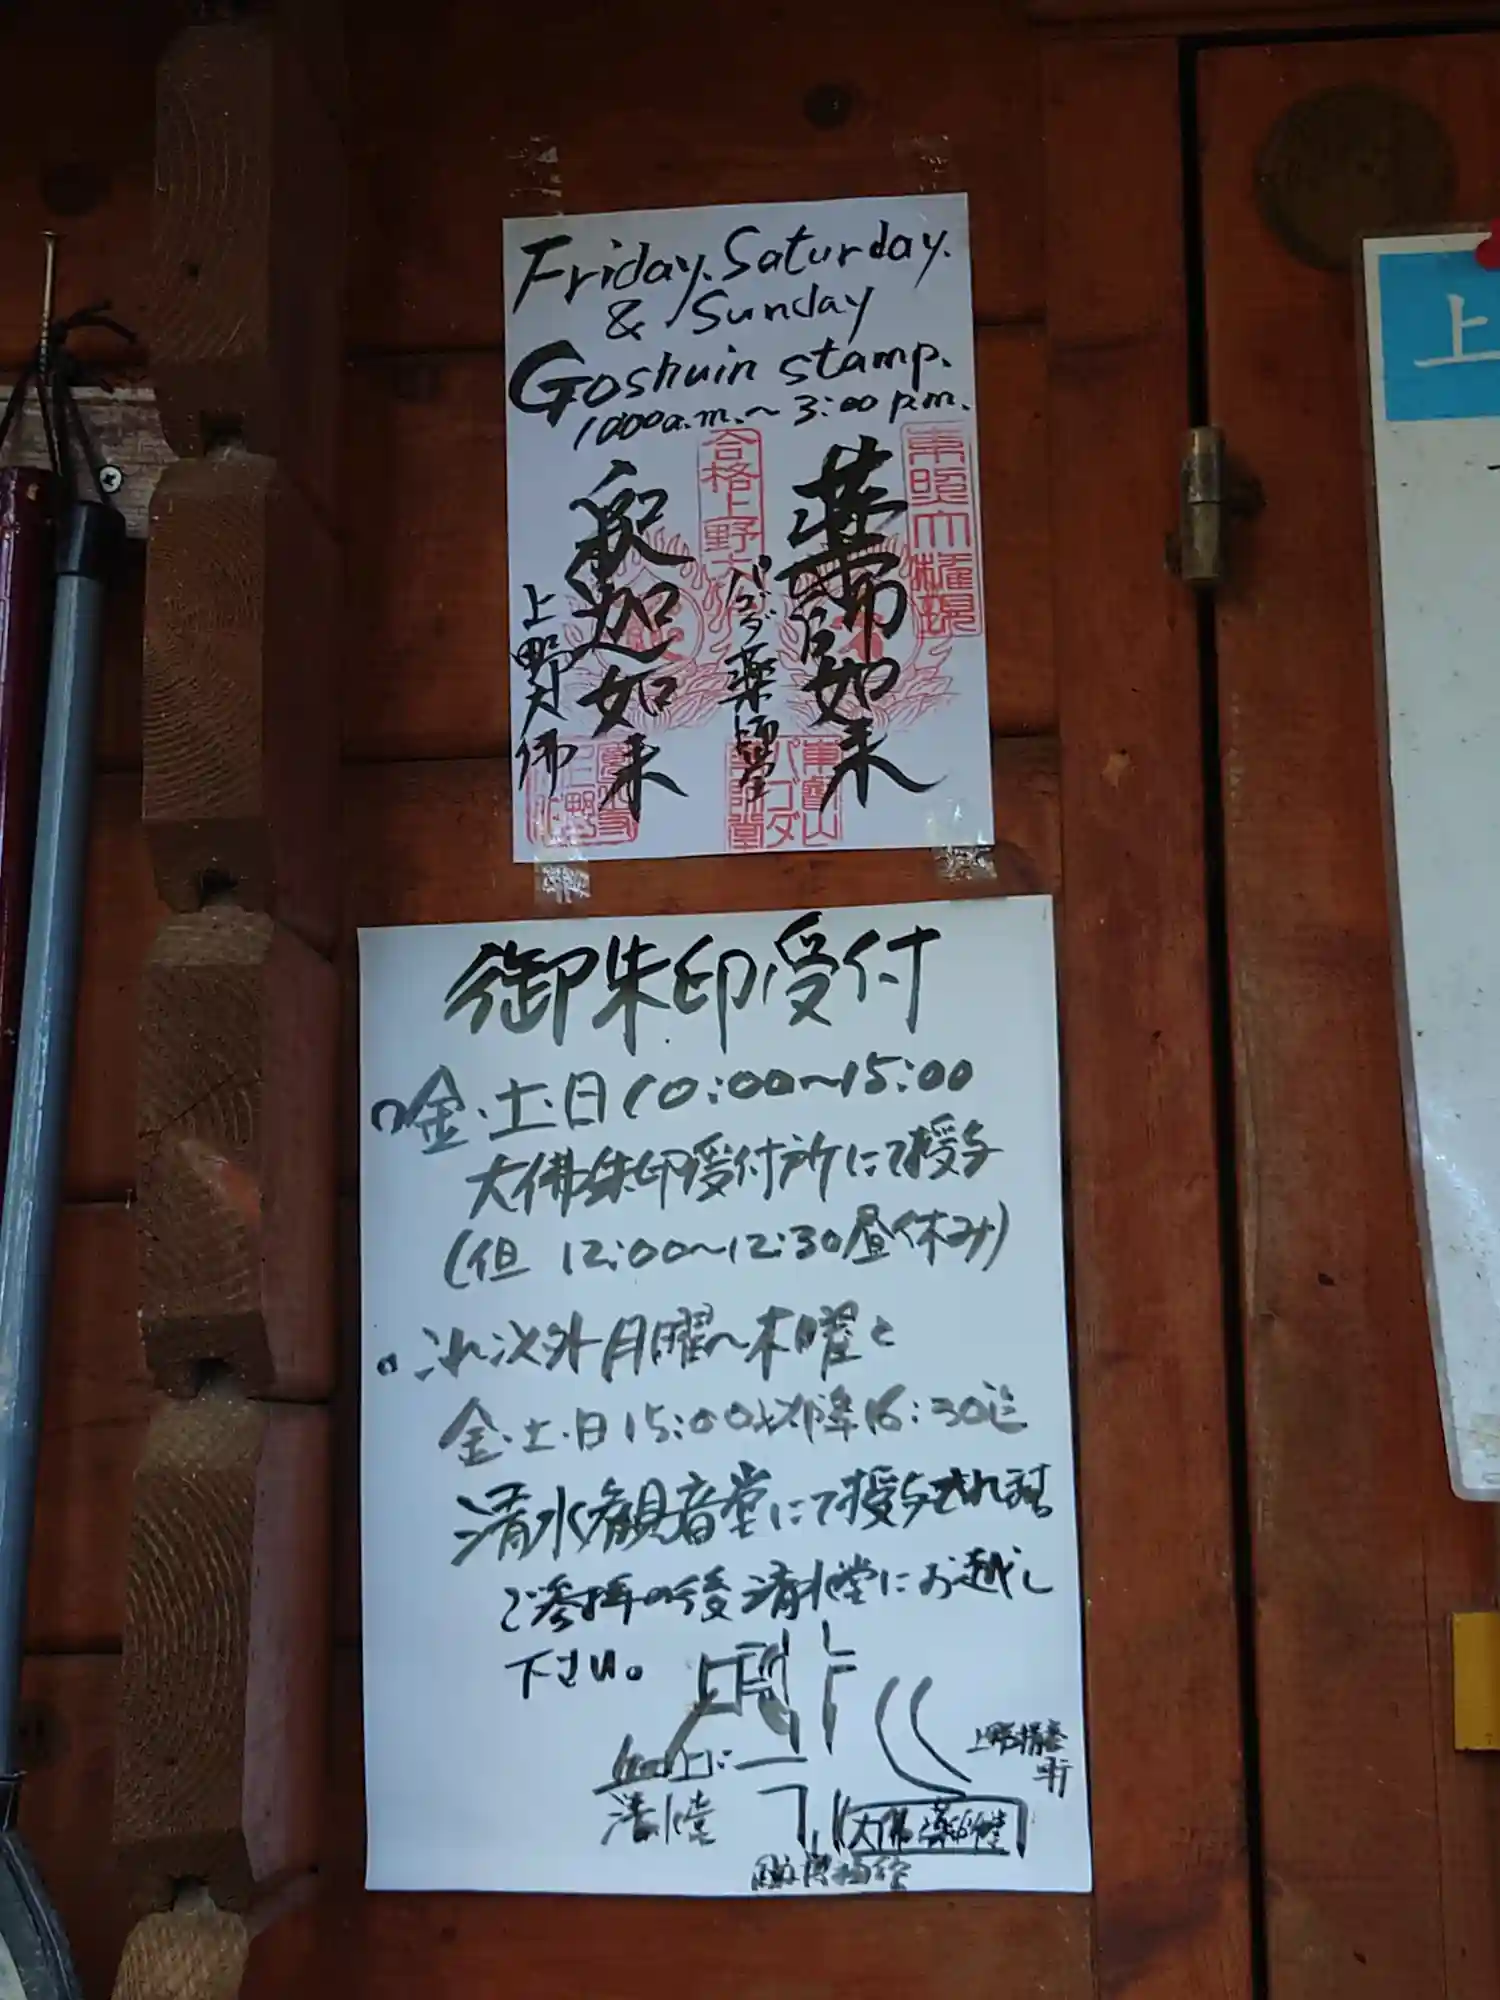 Friday. Saturday.
& Sunday
Goshuin stamp.
10:00a.m.～3:00 p.m.
東照大権現
薬師如来
合格上野大
パゴダ薬師堂
釈迦如来
上野大佛
東叡山
パゴダ
薬師堂
上
御朱印受付
金・土・日10:00～15:00
大佛朱印受付所にて授与
(但 12:00～12:30昼休み)
これ以外月曜～木曜と
金・土・日15:00以降16:30迄
清水観音堂にて授与されます
ご参拝の後清水堂にお越し
下さい。
清水堂
上野精養軒
大佛 薬師堂